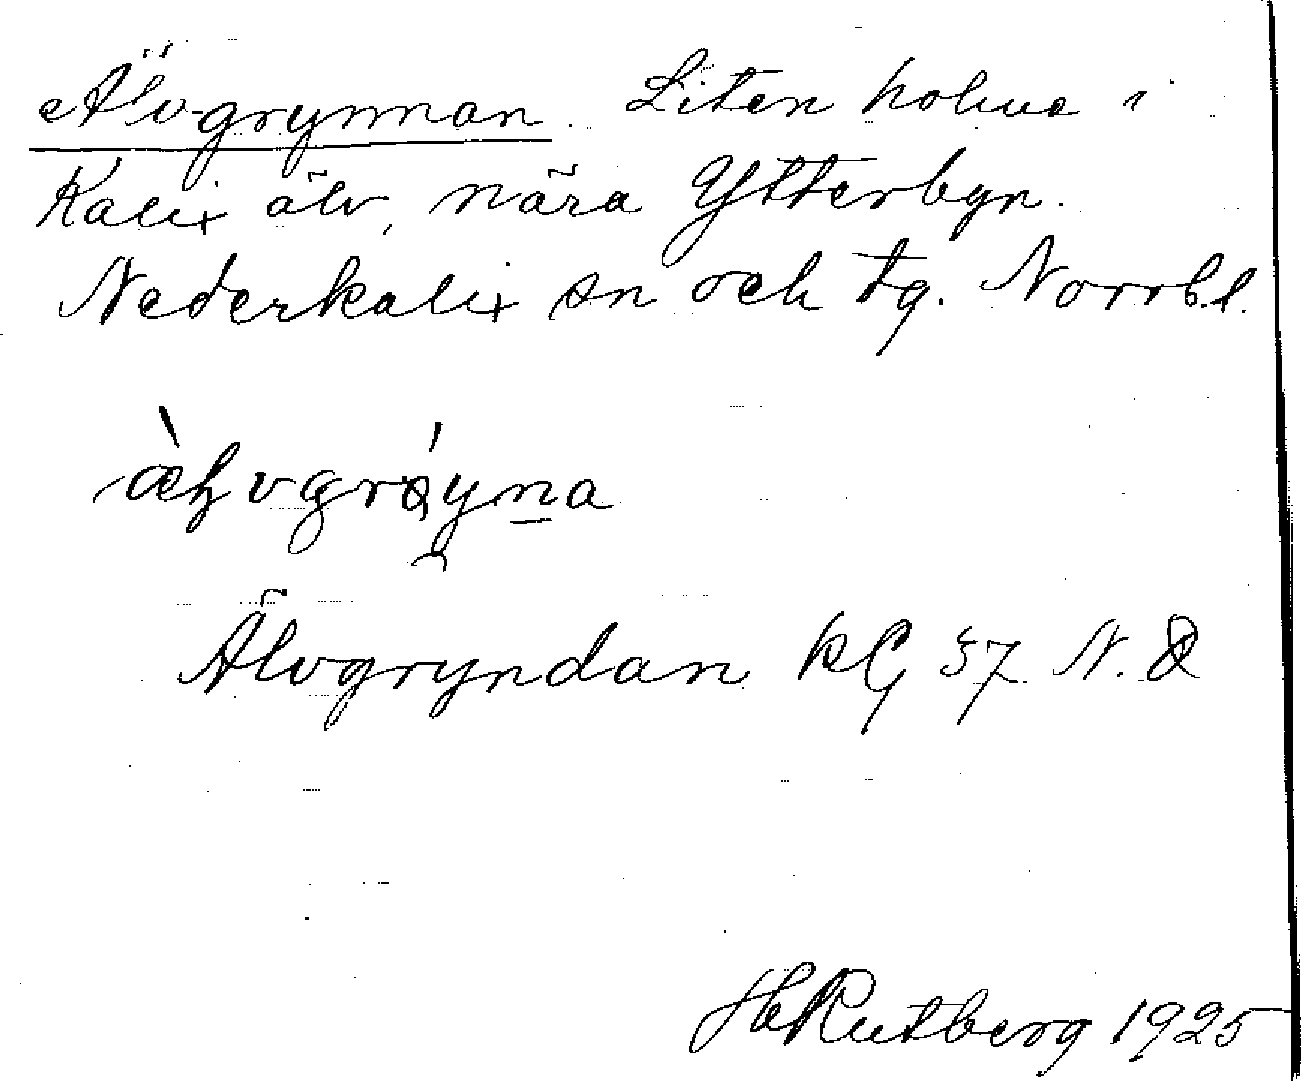 Älvgrynnan. Liten holme i
Kalix älv, nära Ytterbyn.
Nederkalix sn och tg. Norrb.l.
Älvgryndan kG 57 N. Ö
HRutberg 1925